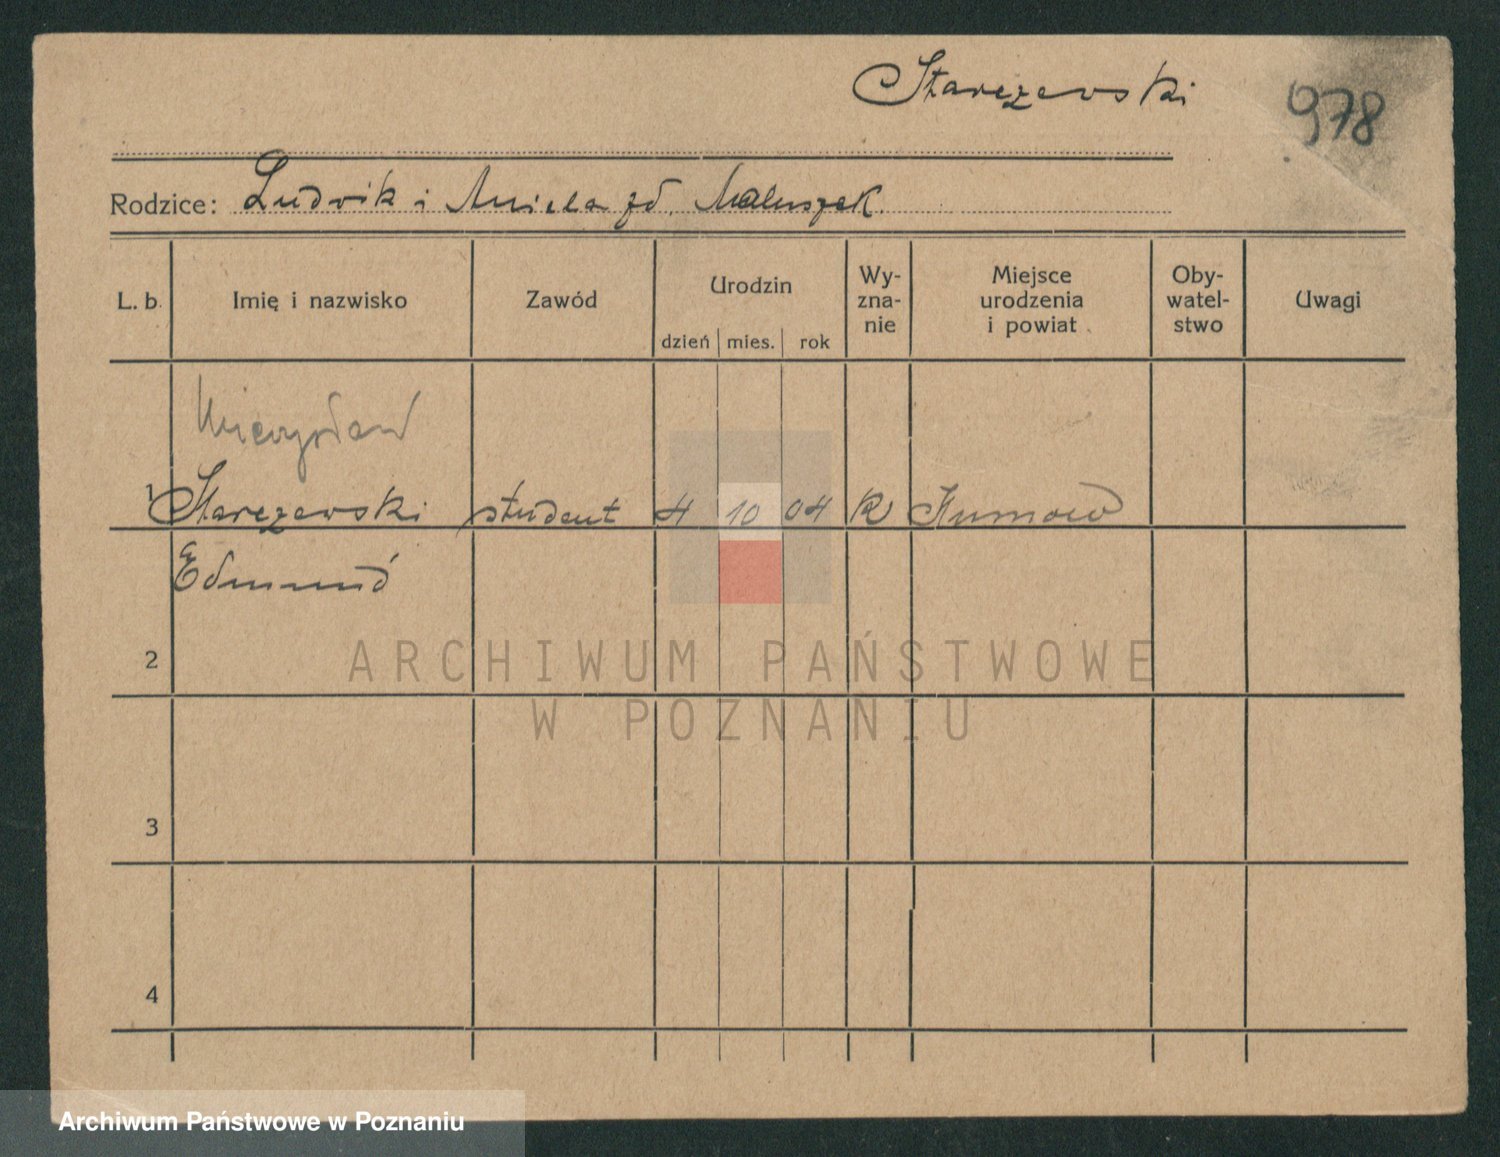 Starczewski
978
Rodzice: Ludwik i Aniela zd. Maluszek
L. b. Imię i nazwisko Zawód Urodzin dzień mies. rok Wy-zna-nie Miejsce urodzenia i powiat Oby-watel-stwo Uwagi
Mieczysław
1 Starczewski student 4 10 04 R
Edmund
2
ARCHIWUM PAŃSTWOWE
W POZNANIU
3
4
Archiwum Państwowe w Poznaniu